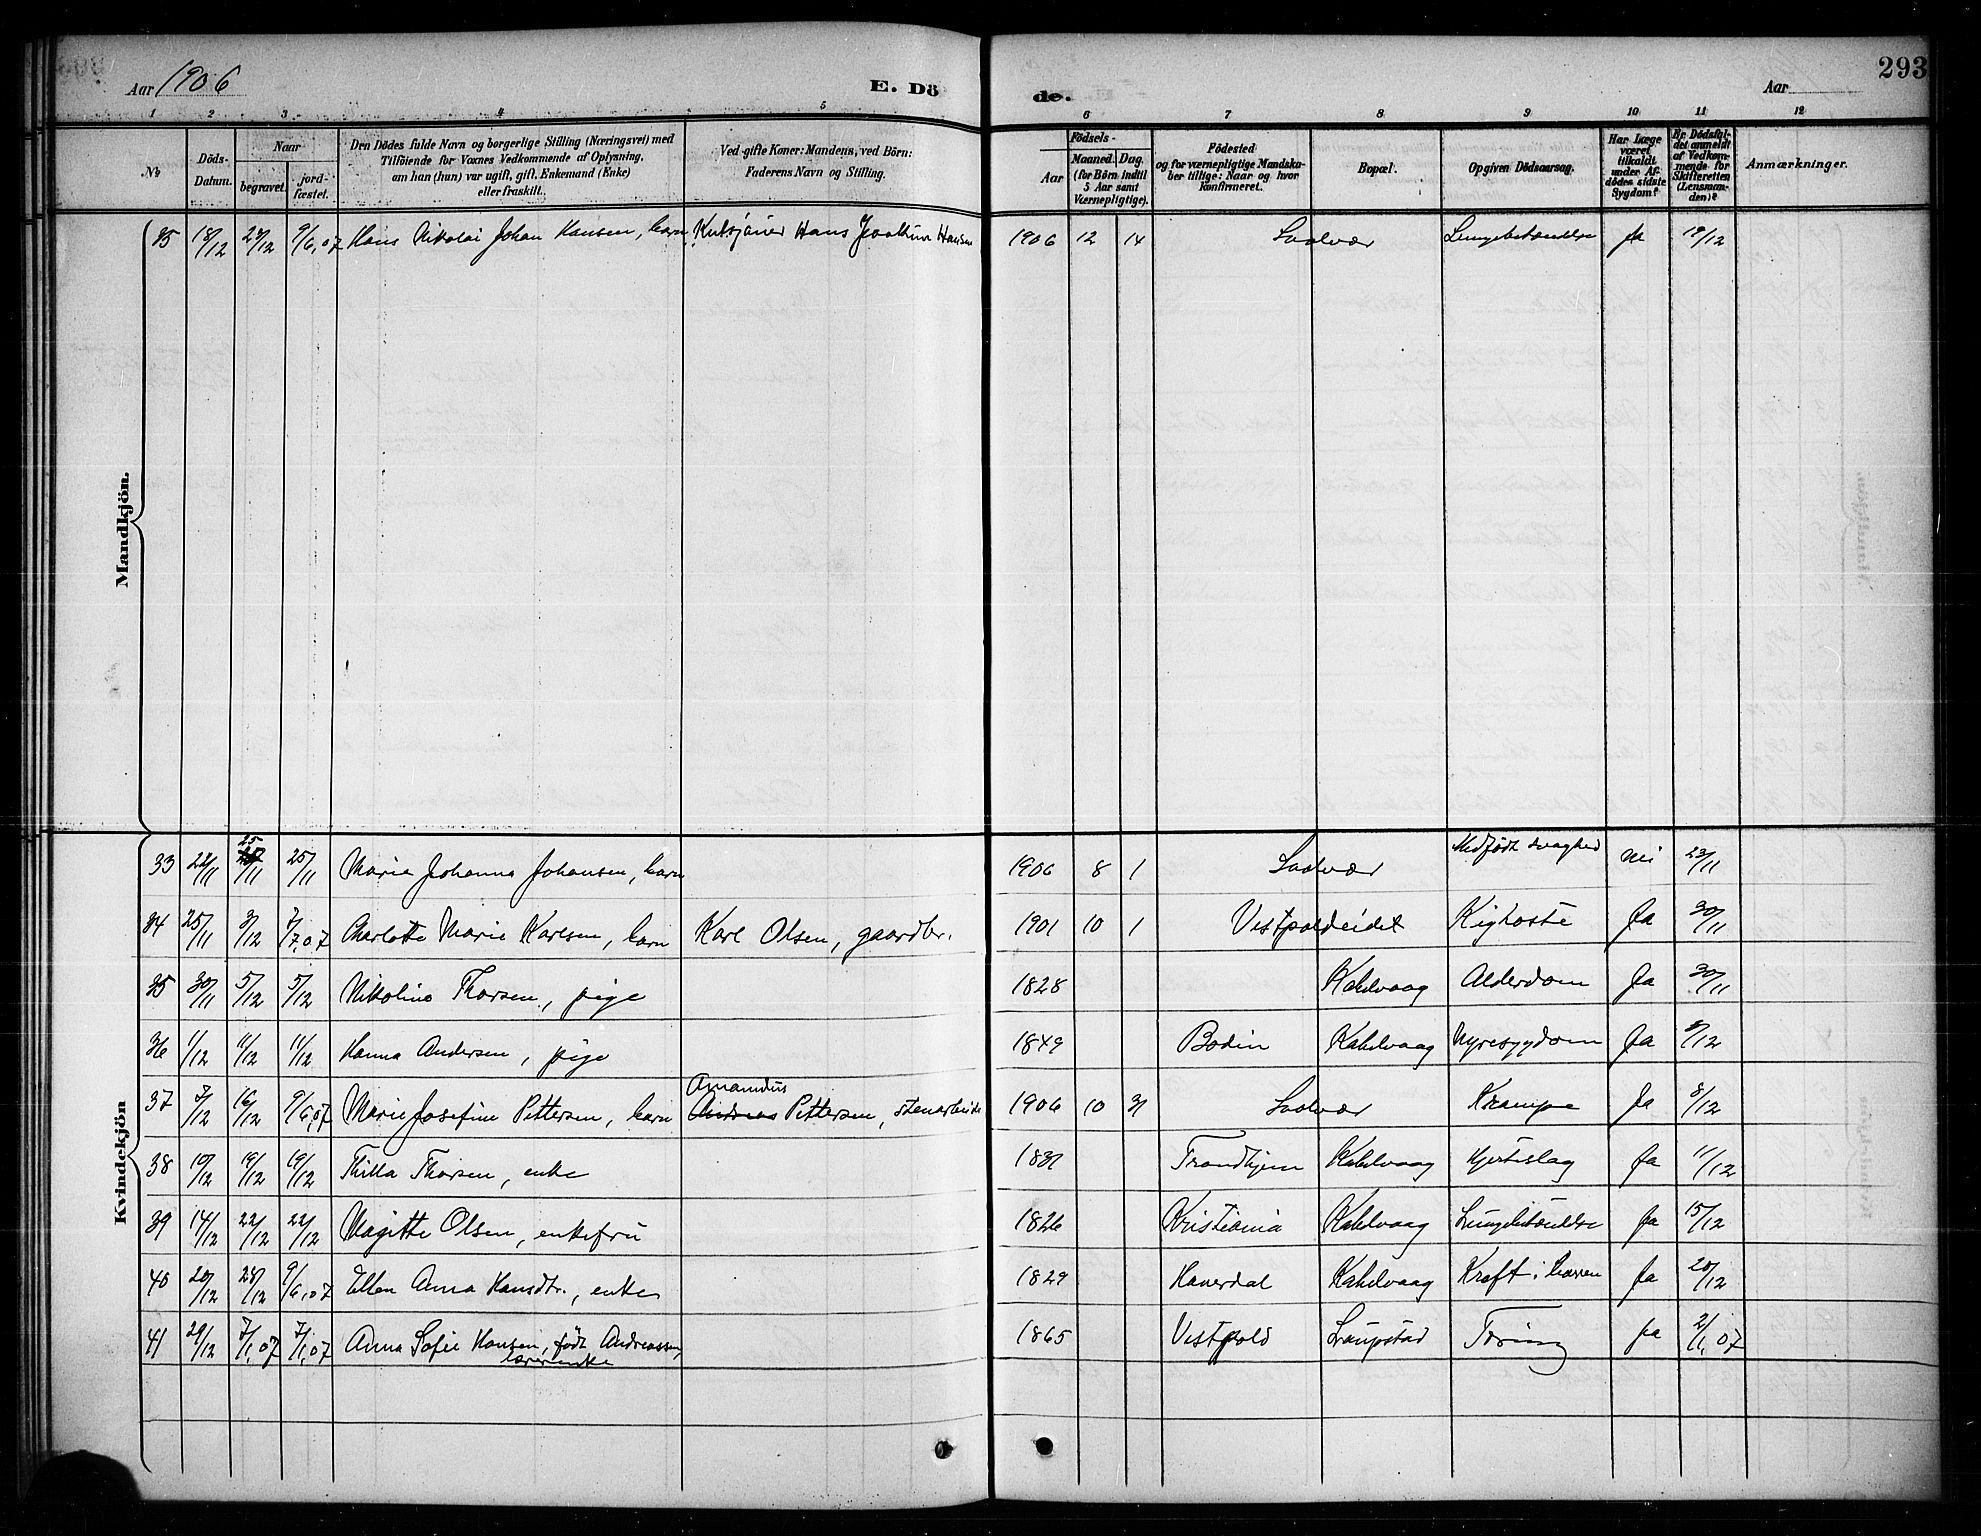 Aar 1906 E. Dö de. Aar 293
1 2 3 4 5 6 7 8 9 10 11 12
№
Döds-Datum.
Naar
begravet.
jordfæstet.
Den Dödes fulde Navn og borgerlige Stilling (Næringsvei) med
Tilföiende for Voxnes Vedkommende af Oplysning,
om han (hun) var ugift, gift, Enkemand (Enke)
eller fraskilt.
Ved gifte Koner: Mandens, ved Börn:
Faderens Navn og Stilling.
Födsels-
Aar
Maaned. Dag.
(for Börn indtil
5 Aar samt
Værnepligtige).
Födested
og for værnepligtige Mandskaber tillige: Naar og hvor
Konfirmeret.
Bopæl.
Opgiven Dödsaarsag.
Har Læge
været
tilkaldt
under Afdödes sidste
Sygdom?
Er Dödsfaldet anmeldt
af Vedkommende for
Skifteretten
(Lensmanden)?
Anmærkninger.
Mandkjön.
35 18/12 28/12 9/6,07 Hans Nikolai Johan Hansen, barn Hans Joachim Hansen 1906 12 14 Svolvær Lungebetændelse Ja 19/12
Kvindekjön
33 22/11 25/11 25/11 Marie Johanna Johansen, barn 1906 8 1 Svolvær Medfødt svaghed nei 23/11
34 25/11 3/12 7/7,07 Charlotte Marie Karlsen, barn Karl Olsen, gaardbr. 1901 10 1 Vestpoldeidet Kighoste Ja 30/11
35 30/11 5/12 5/12 Nikoline Thorsen, pige 1828 Kabelvaag Alderdom Ja 30/11
36 1/12 11/12 11/12 Hanna Andersen, pige 1849 Bodin Kabelvaag Nyresygdom Ja 3/12
37 7/12 16/12 9/6,07 Marie Josefine Pettersen, barn Amandus Andreas Pettersen, stenarbeider 1906 10 31 Svolvær Krampe Ja 8/12
38 10/12 19/12 19/12 Thilla Thorsen, enke 1831 Trondhjem Kabelvaag Hjerteslag Ja 11/12
39 14/12 22/12 22/12 Magitte Olsen, enkefru 1826 Kristiania Kabelvaag Lungebetændelse Ja 15/12
40 20/12 28/12 9/6,07 Ellen Anna Hansdtr., enke 1829 Haverdal Kabelvaag Kræft i Ja 20/12
41 29/12 7/1,07 7/1,07 Anna Sofie Hansen, født Andreassen, 1865 Vestpold Laupstad Tæring Ja 2/1,07
lærerenke